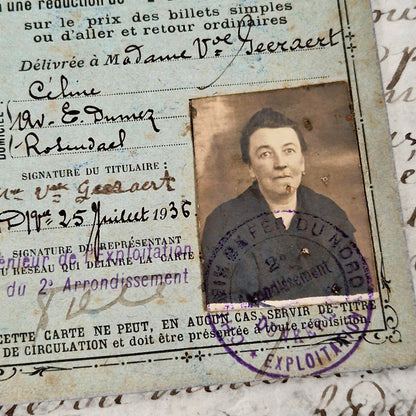 une réduction de
sur le prix des billets simples
ou d'aller et retour ordinaires
Délivrée à Madame Vve Geeraert
Céline
DOMICILE
Av. E. Dumez
Rosendael
SIGNATURE DU TITULAIRE :
Vve Geeraert
25 Juillet 1936
SIGNATURE DU REPRÉSENTANT
U RÉSEAU QUI DÉLIVRE LA CARTE
érieur de l'Exploitation
du 2e Arrondissement
CETTE CARTE NE PEUT, EN AUCUN CAS, SERVIR DE TITRE
DE CIRCULATION et doit être présentée à toute réquisition.
FER DU NORD
2e
Arrondissement
EXPLOITATION